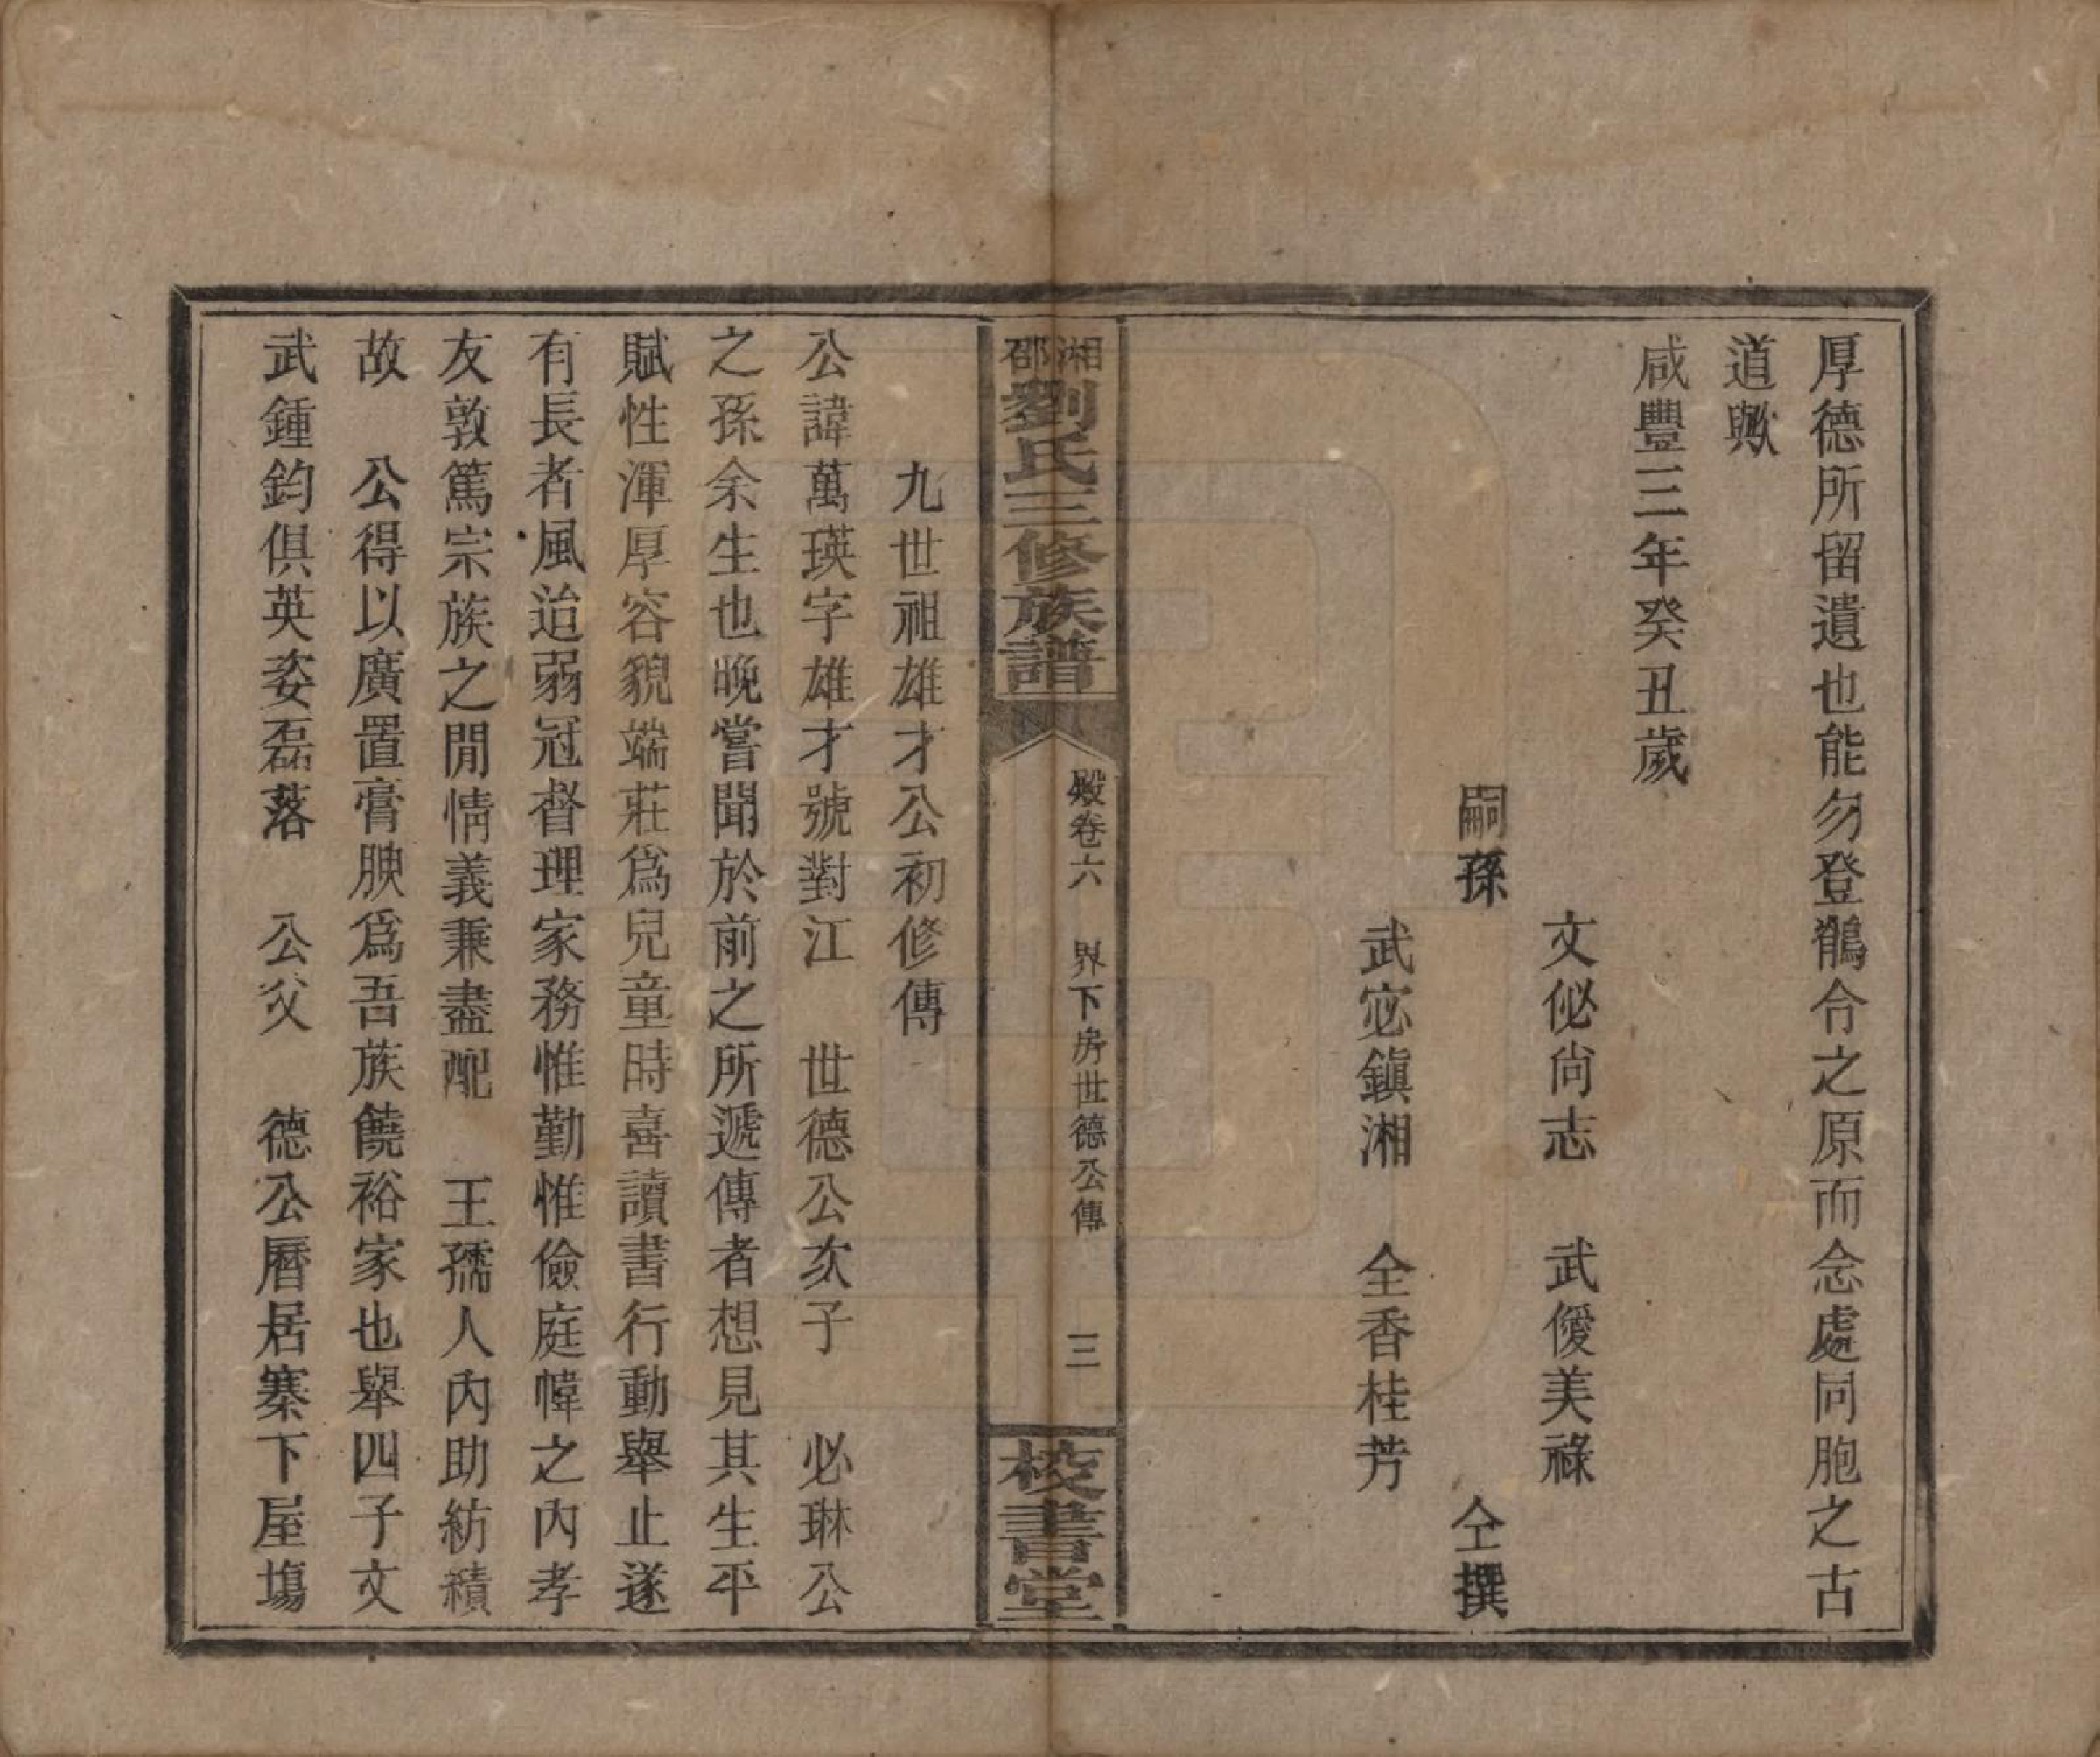 厚德所留遺也能勿登鶺令之原而念處同胞之古
道歟
咸豐三年癸丑歲
文佖尙志　武僾美祿
嗣孫　仝撰
武宓鎮湘　全香桂芳
湘邵劉氏三修族譜
殿卷六　界下房世德公傳　三
校書堂
九世祖雄才公初修傳
公諱萬瑛字雄才號對江　世德公次子　必琳公
之孫余生也晚嘗聞於前之所遞傳者想見其生平
賦性渾厚容貌端莊爲兒童時喜讀書行動舉止遂
有長者風迨弱冠督理家務惟勤惟儉庭幃之內孝
友敦篤宗族之間情義兼盡配　王孺人內助紡積
故　公得以廣置膏腴爲吾族饒裕家也舉四子文
武鍾鈞俱英姿磊落　公父　德公曆居寨下屋塲